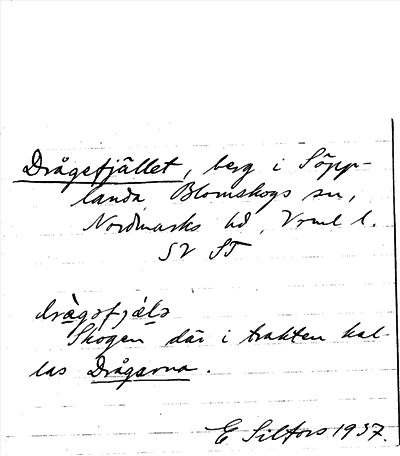 Drågefjället, berg i Söpp-
landa, Blomskogs sn,
Nordmarks hd, Vrml l.
SV ST
dràgəfjælə
Skogen där i trakten kal-
las Drågarna.
E Silfors 1937.